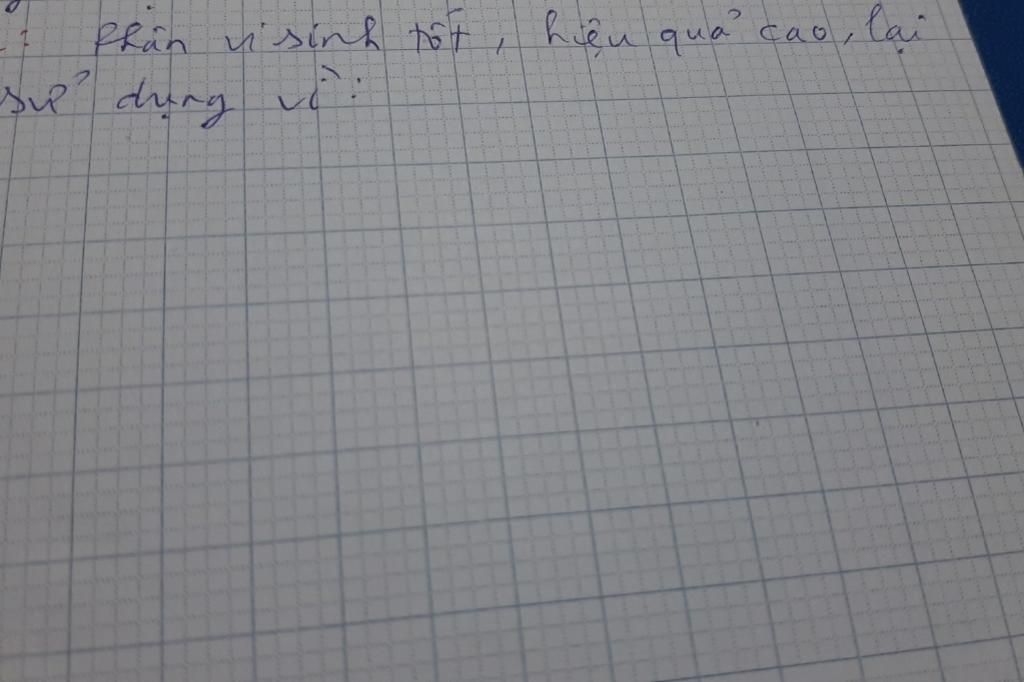 : Phân vi sinh tốt, hiệu quả cao, lại
sử dụng vì: